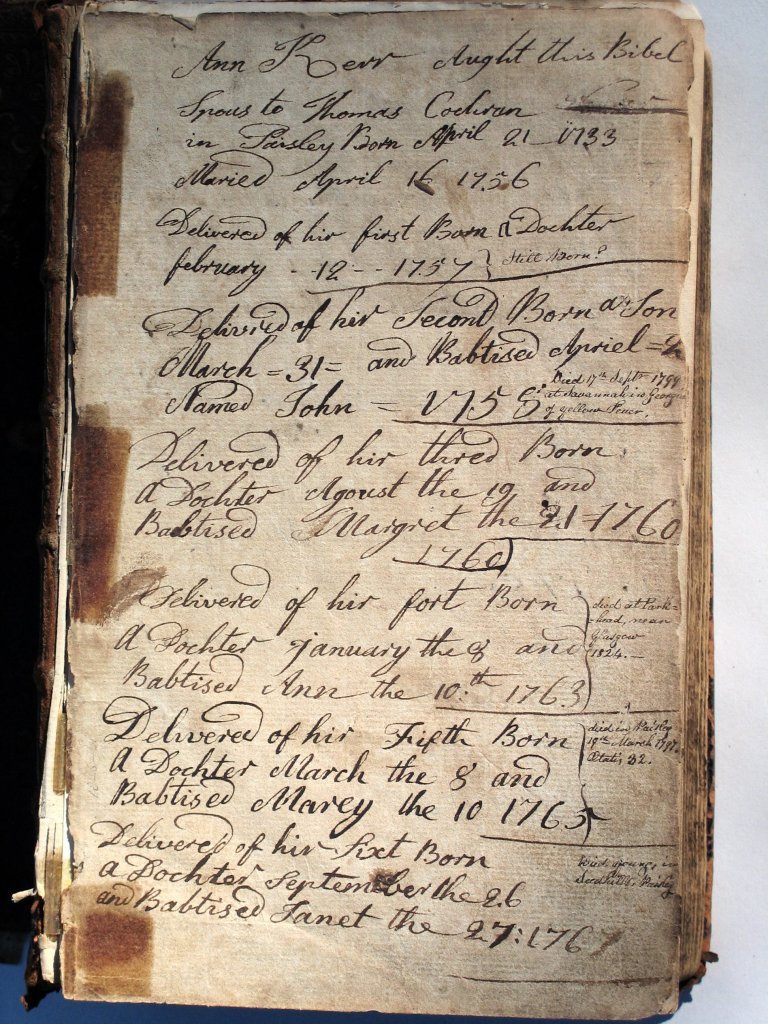 Ann Kerr Aught this Bibel
Spous to Thomas Cochran
in Paisley Born April 21 1733
Maried April 16 1756
Delivered of hir first Born A Dochter
february - 12 - - 1757 } Still Born?
Delivred of hir Second Born a Son
March = 31 = and Babtised Apriel =
Named John = 1758
Died 17th Sept 1799
at Savannah in Georgia
of yellow Fever.
Delivered of hir thred Born
A Dochter Agoust the 19 and
Babtised Margret the 21 1760
1760
Delivered of hir fort Born
A Dochter january the 8 and
Babtised Ann the 10:th 1763
died at Park-
-head, near
Glasgow
1824.-
Delivered of hir Fifth Born
A Dochter March the 8 and
Babtised Marey the 10 1765
died in Paisley
19th March 1797
Ætatis 32.
Delivered of hir Sixt Born
a Dochter September the 26
and Babtised Janet the 27: 1767
died young, in
Paisley